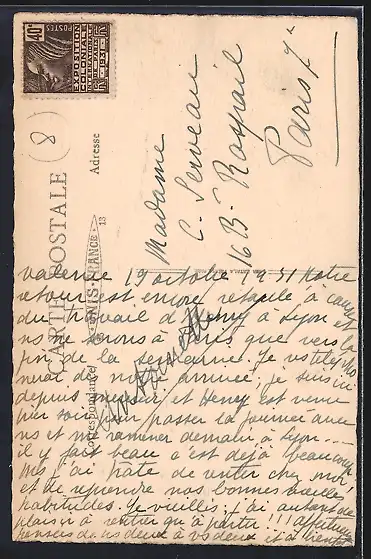 POSTES
40c
EXPOSITION
COLONIALE
INTERNATIONALE
PARIS 1931
CARTE POSTALE
(8)
Adresse
Correspondance
UNIS-FRANCE
13
Madame
C. Serveau
16 B. Raspail
Paris 7e
Valence 19 octobre 1931 Notre
retour est encore retardé à cause
du travail d'Henry à Lyon et
ns ne serons à Paris que vers la
fin de la semaine. Je vs télépho
nerai dès notre arrivée, je suis ici
depuis et Henry est venu
hier soir pour passer la journée avec
ns et me ramener demain à Lyon....
il y fait beau c'est déjà beaucoup
mais j'ai hâte de rentrer chez moi
et de reprendre nos bonnes vieilles
habitudes. Je vieillis, j'ai autant de
plaisir à rentrer qu'à partir !!! affectueuses
pensées de ns deux à vs deux et à bientôt